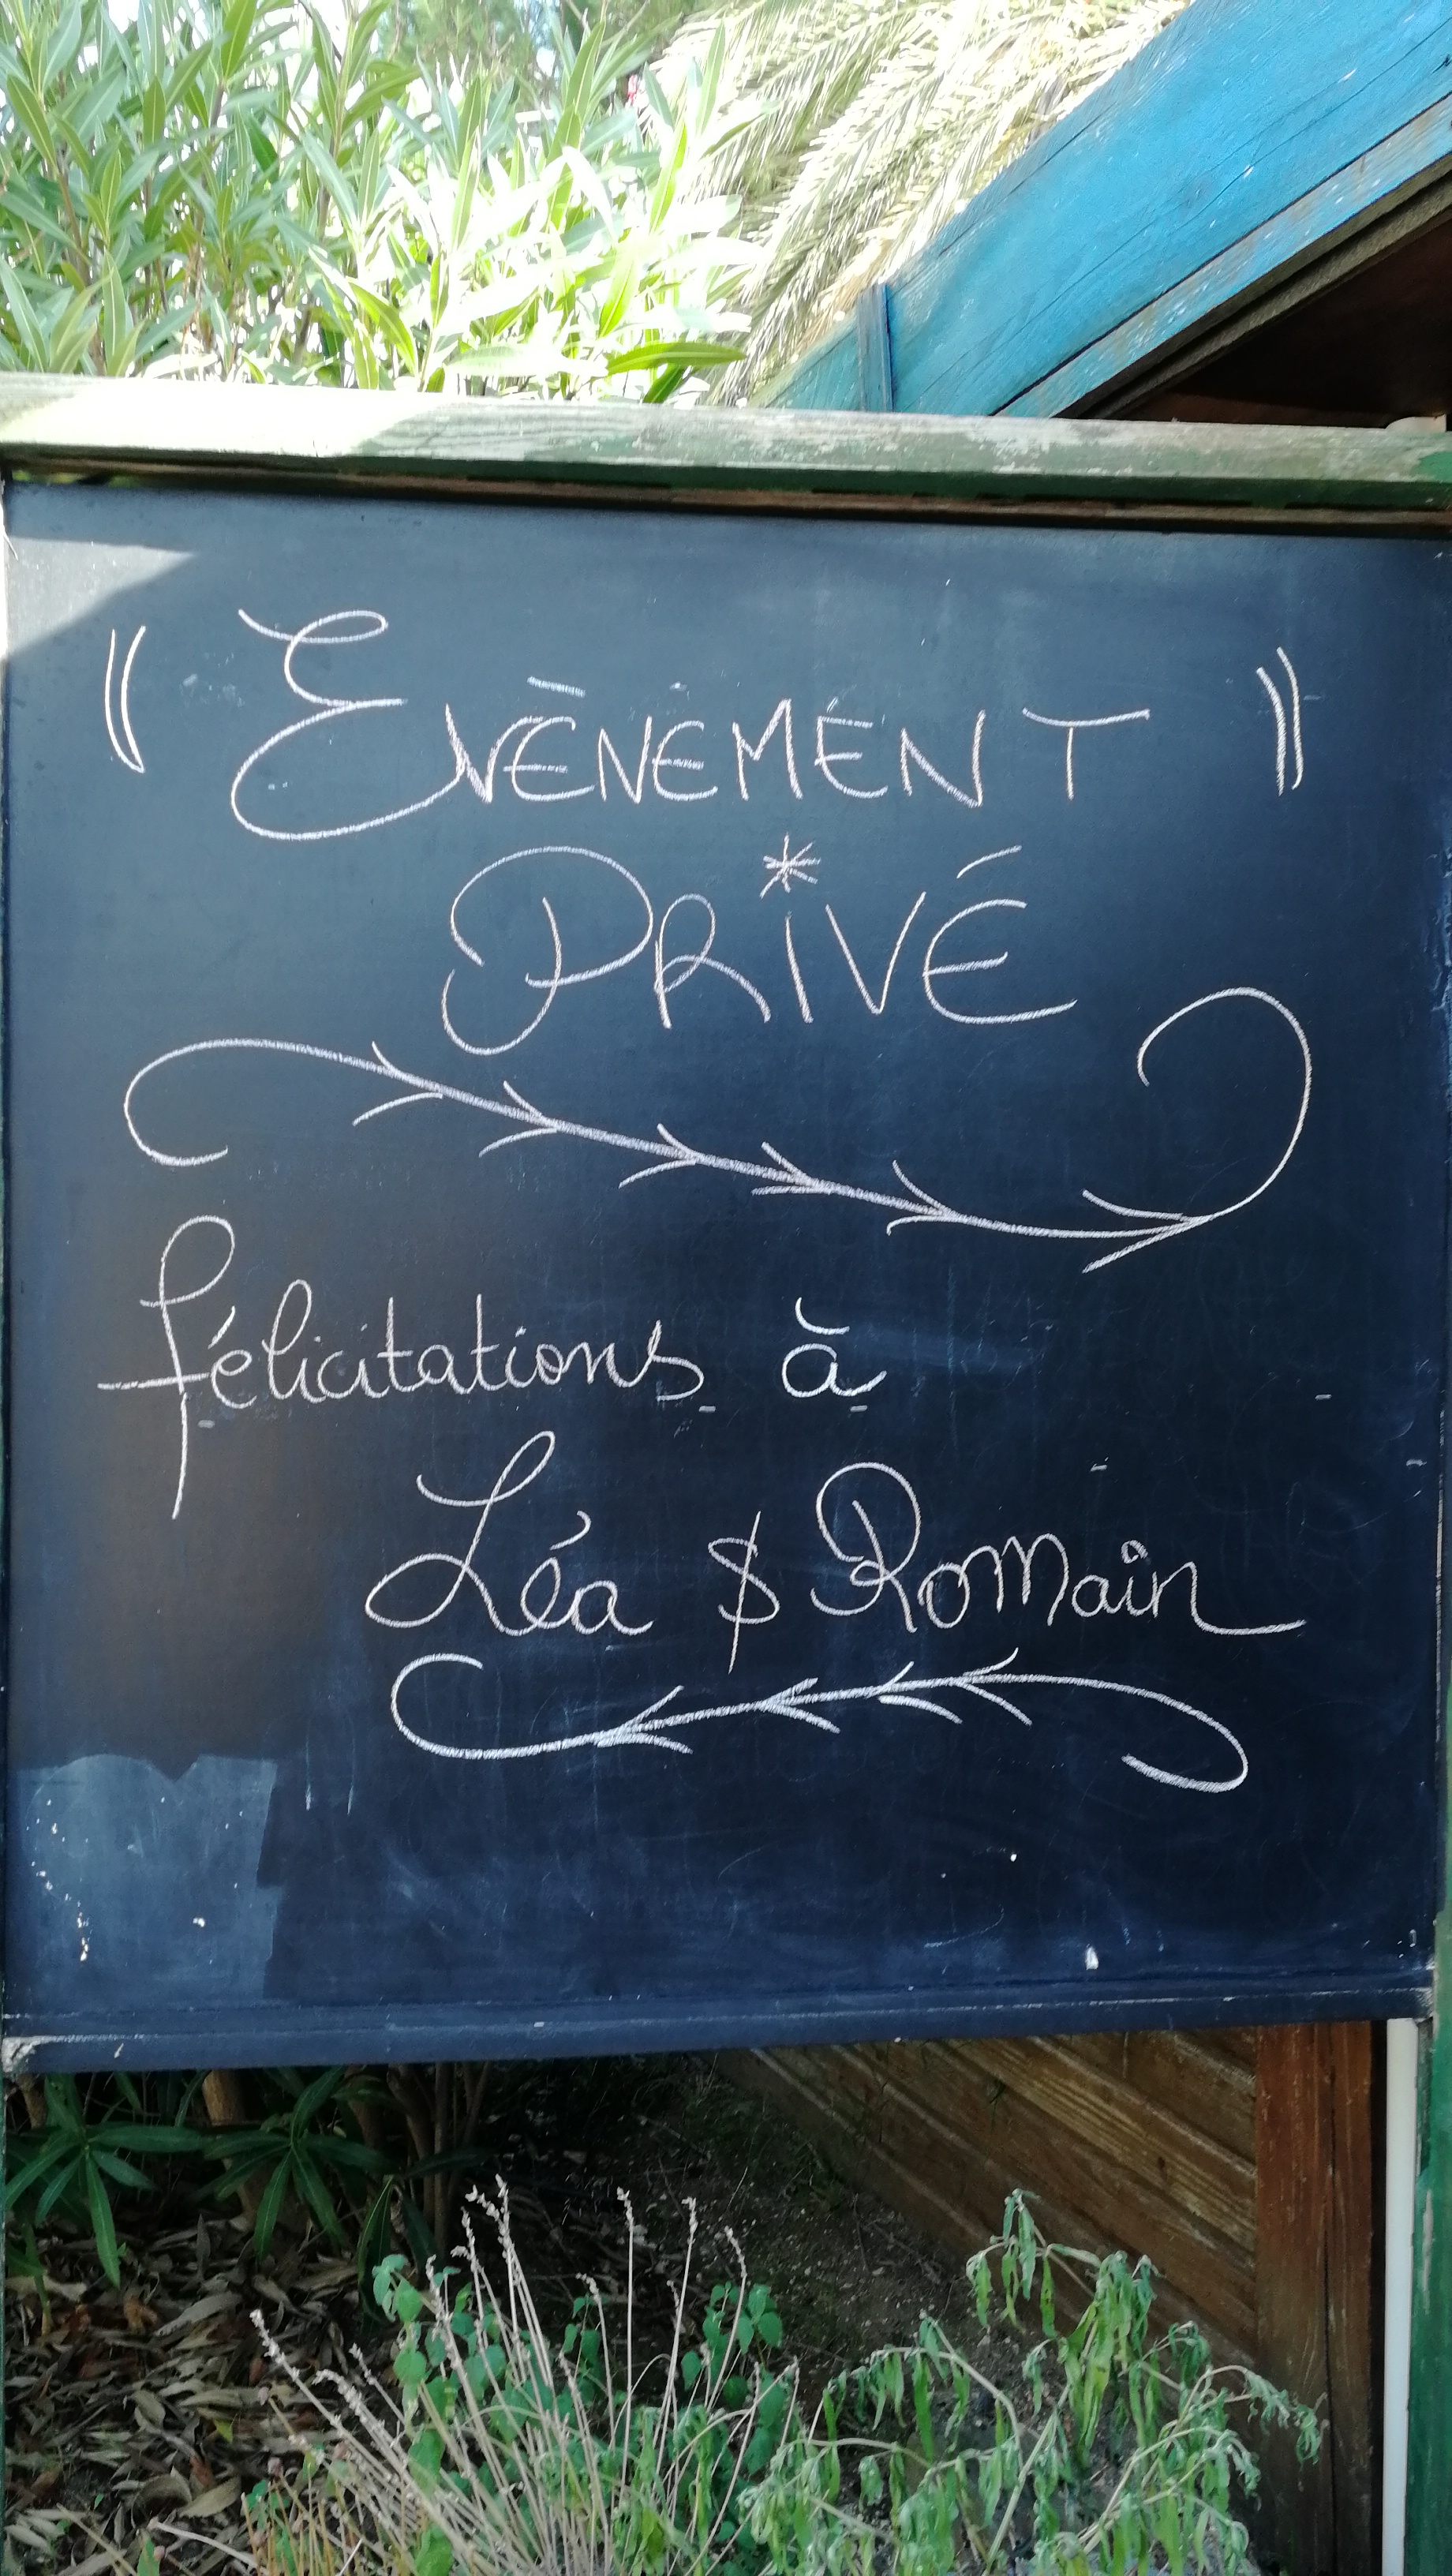 " Evènement "
Privé
félicitations à
Léa & Romain